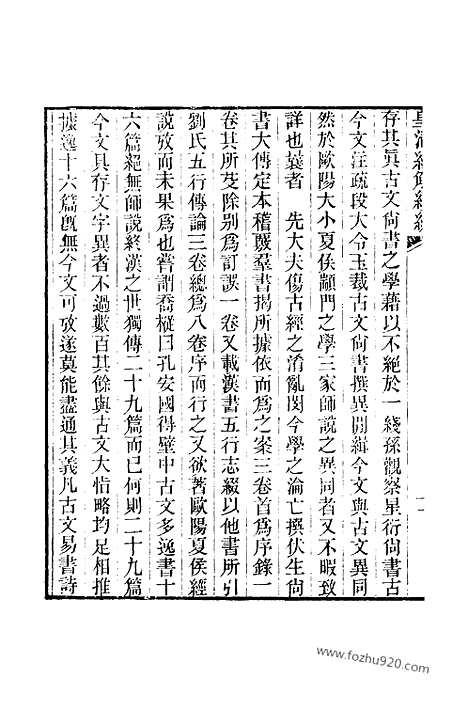 皇清經解續編
存其眞古文尙書之學藉以不絕於一綫孫觀察星衍尙書古
今文注疏段大令玉裁古文尙書撰異閒緝今文與古文異同
然於歐陽大小夏侯顓門之學三家師說之異同者又不暇致
詳也曩者　先大夫傷古經之淆亂閔今學之淪亡撰伏生尙
書大傳定本稽覈羣書揭所據依而爲之案三卷首爲序錄一
卷其所芟除別爲訂誤一卷又載漢書五行志綴以他書所引
劉氏五行傳論三卷總爲八卷序而行之又欲著歐陽夏侯經
說攷而未果爲也嘗謂喬樅曰孔安國得壁中古文多逸書十
六篇絕無師說終漢之世獨傳二十九篇而已何則二十九篇
今文具存文字異者不過數百其餘與古文大恉略均足相推
據逸十六篇旣無今文可攷遂莫能盡通其義凡古文易書詩
www.fozhu920.com